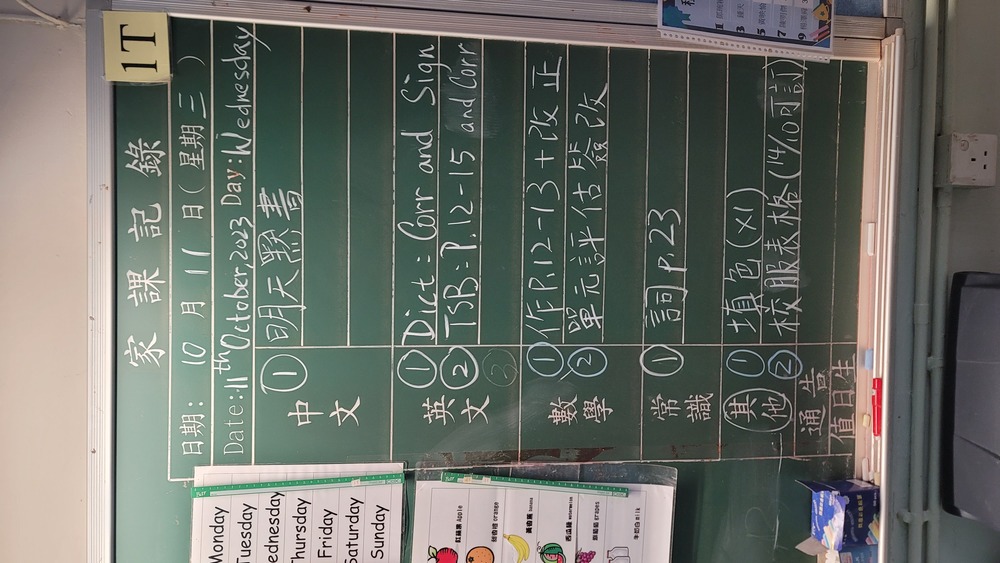 1T
家課記錄
日期: 10 月 11 日 ( 星期 三 )
Date: 11th October, 2023 Day: Wednesday
中文
① 明天默書
英文
① Dict: Corr and Sign
② TSB: P.12-15 and Corr
③
數學
① 作P.12-13+改正
② 單元評估簽改
常識
① 詞 P.23
其他
① 填色(x1)
② 校服表格(14/10可訂)
通告
值日生
Monday
Tuesday
Wednesday
Thursday
Friday
Saturday
Sunday
紅蘋果 Apple
orange
黃香蕉 banana
西瓜
紫葡萄 grapes
牛奶白 milk